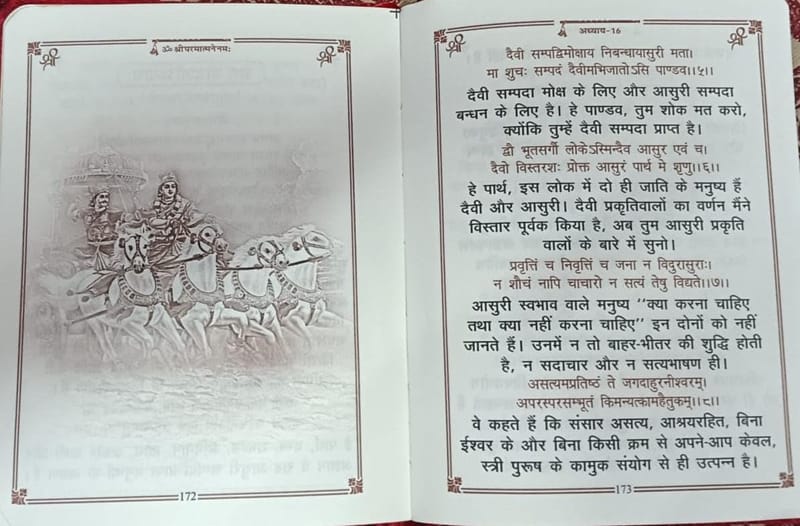 श्री
ॐ श्रीपरमात्मनेनमः
श्री
172
श्री
अध्याय-16
श्री
दैवी सम्पद्विमोक्षाय निबन्धायासुरी मता।
मा शुचः सम्पदं दैवीमभिजातोऽसि पाण्डव।।५।।
दैवी सम्पदा मोक्ष के लिए और आसुरी सम्पदा
बन्धन के लिए है। हे पाण्डव, तुम शोक मत करो,
क्योंकि तुम्हें दैवी सम्पदा प्राप्त है।
द्वौ भूतसर्गौ लोकेऽस्मिन्दैव आसुर एवं च।
दैवो विस्तरशः प्रोक्त आसुरं पार्थ मे शृणु।।६।।
हे पार्थ, इस लोक में दो ही जाति के मनुष्य हैं
दैवी और आसुरी। दैवी प्रकृतिवालों का वर्णन मैंने
विस्तार पूर्वक किया है, अब तुम आसुरी प्रकृति
वालों के बारे में सुनो।
प्रवृत्तिं च निवृत्तिं च जना न विदुरासुराः।
न शौचं नापि चाचारो न सत्यं तेषु विद्यते।।७।।
आसुरी स्वभाव वाले मनुष्य "क्या करना चाहिए
तथा क्या नहीं करना चाहिए" इन दोनों को नहीं
जानते हैं। उनमें न तो बाहर-भीतर की शुद्धि होती
है, न सदाचार और न सत्यभाषण ही।
असत्यमप्रतिष्ठं ते जगदाहुरनीश्वरम्।
अपरस्परसम्भूतं किमन्यत्कामहैतुकम्।।८।।
वे कहते हैं कि संसार असत्य, आश्रयरहित, बिना
ईश्वर के और बिना किसी क्रम से अपने-आप केवल,
स्त्री पुरूष के कामुक संयोग से ही उत्पन्न है।
173